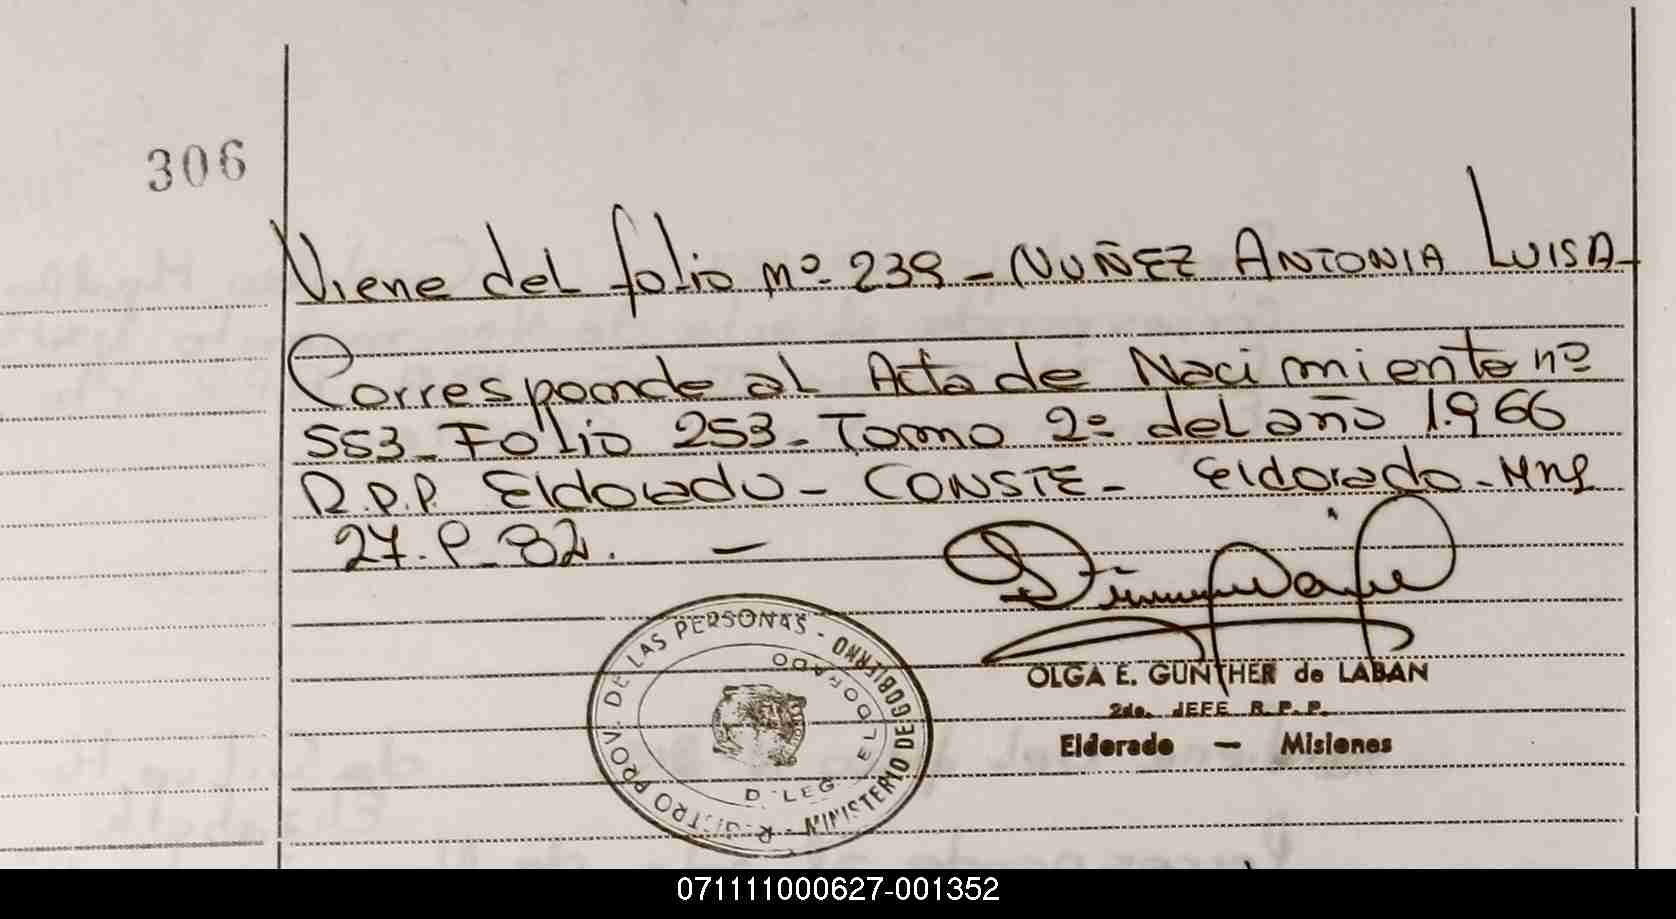 306
Viene del folio nº 239 - NUÑEZ ANTONIA LUISA -
Corresponde al Acta de Nacimiento nº
553 - Folio 253 - Tomo 2º del año 1.966
R.P.P. Eldorado - CONSTE - Eldorado - Mns
27. 82. -
REGISTRO PROV. DE LAS PERSONAS - MINISTERIO DE GOBIERNO
DELEG. ELDORADO
OLGA E. GUNTHER de LABAN
2do. JEFE R. P. P.
Eldorado — Misiones
071111000627-001352